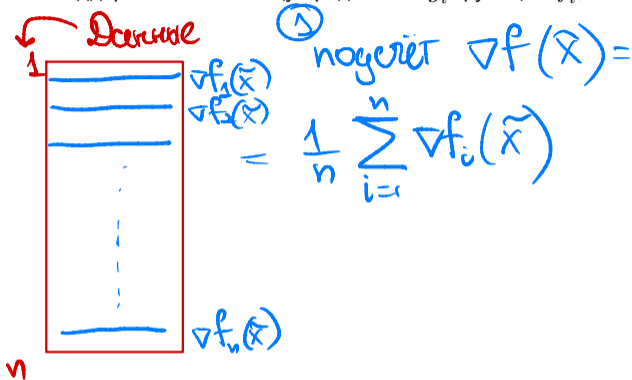 Данные
1
∇f₁(x̃)
∇f₂(x̃)
∇fₙ(x̃)
n
①
подсчёт ∇f(x̃) =
= 1/n ∑ⁿᵢ₌₁ ∇fᵢ(x̃)